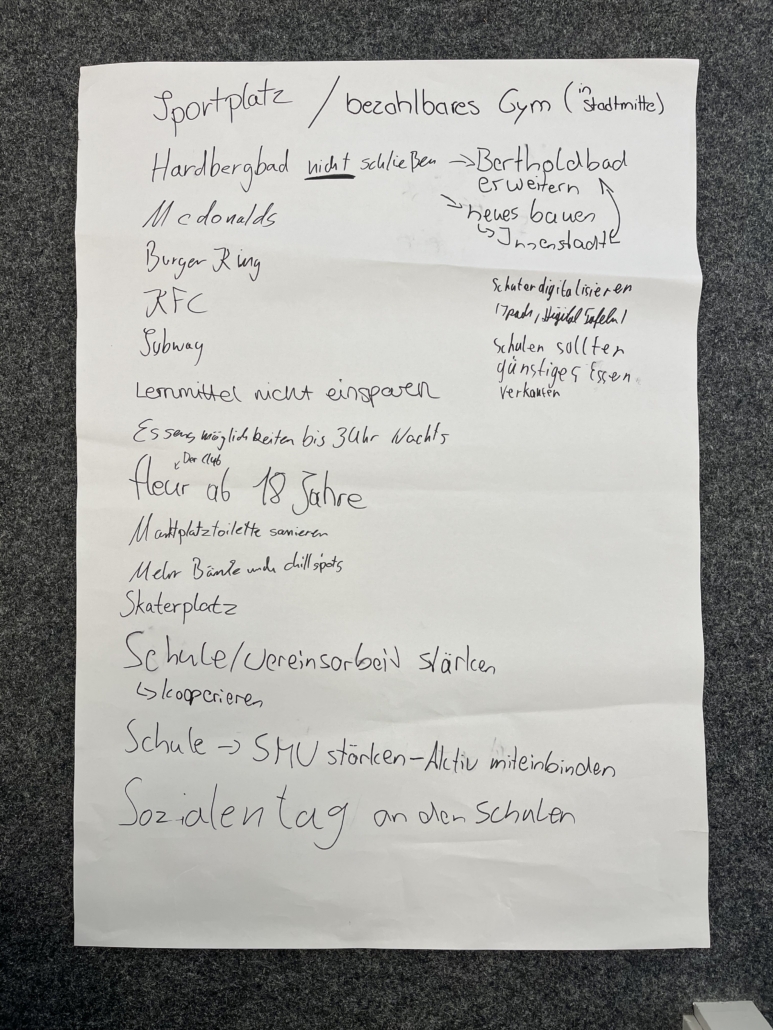 Sportplatz / bezahlbares Gym (in Stadtmitte)
Hardbergbad nicht schließen → Bertholdbad
erweitern
↘ neues bauen
↳ Innenstadt
Mcdonalds
Burger King
KFC
Subway
digitalisieren
Ipads, Digital Tafeln!
Schulen sollten
günstiges Essen
verkaufen
Lernmittel nicht einsparen
Essensmöglichkeiten bis 3 Uhr Nachts
Der Club
fleur ab 18 Jahre
Marktplatztoilette sanieren
Mehr Bänke und chillspots
Skaterplatz
Schule/Vereinsarbeid stärken
↳ kooperieren
Schule → SMV stärken - Aktiv miteinbinden
Sozialentag an den Schulen